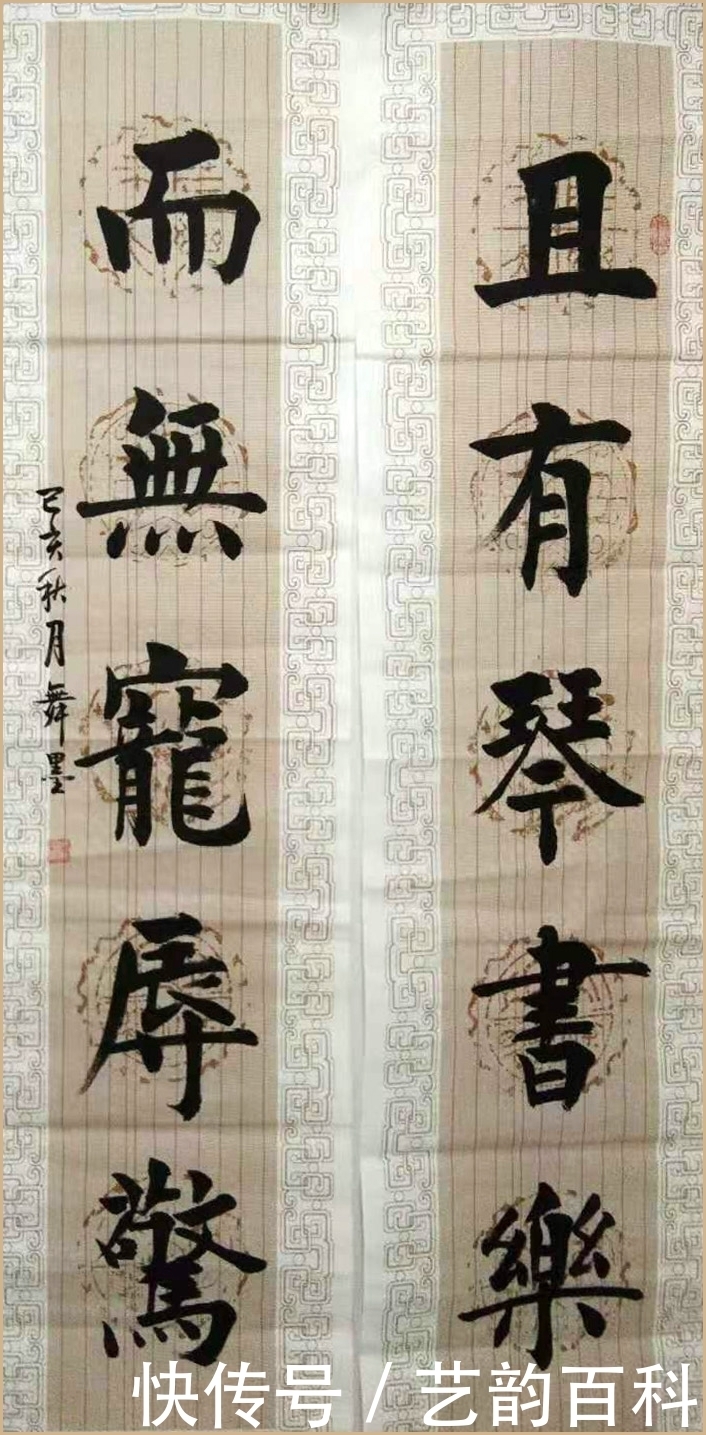 且有琴書樂
而無寵辱驚
己亥秋月舞墨
快传号/艺韵百科